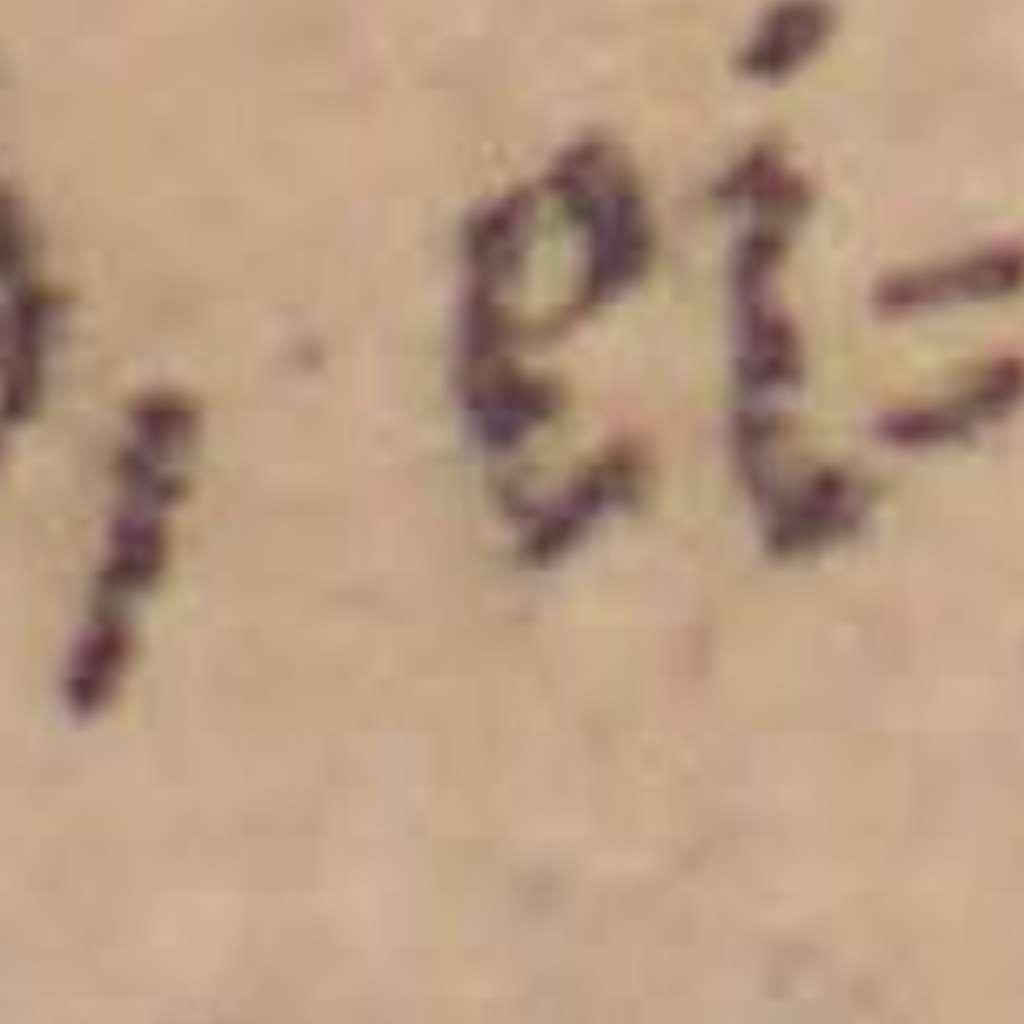 , ei=